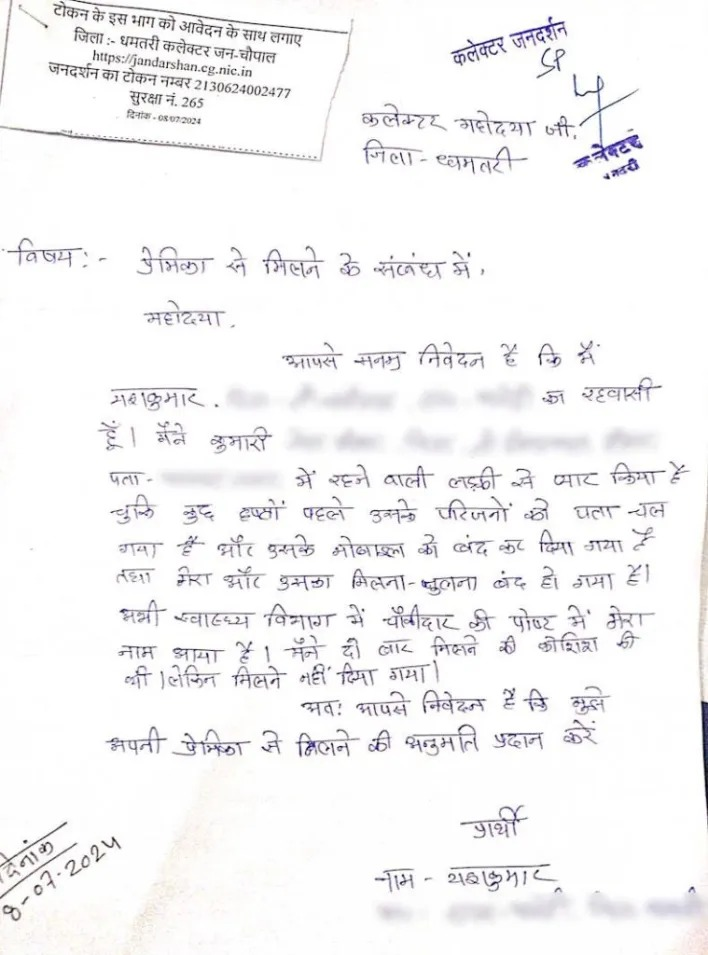 टोकन के इस भाग को आवेदन के साथ लगाए
जिला :- धमतरी कलेक्टर जन-चौपाल
https://jandarshan.cg.nic.in
जनदर्शन का टोकन नम्बर 2130624002477
सुरक्षा नं. 265
दिनांक - 08/07/2024
कलेक्टर जनदर्शन
SP
कलेक्टर महोदया जी,
जिला - धमतरी
कलेक्टर
धमतरी
विषय :- प्रेमिका से मिलने के संबंध में,
महोदया,
आपसे सनम्र निवेदन है कि मैं
यशकुमार, का रहवासी
हूँ। मैंने कुमारी
पता - में रहने वाली लड़की से प्यार किया है
चुकि कुछ हफ्तों पहले उसके परिजनों को पता चल
गया है और उसके मोबाइल को बंद कर दिया गया है
तथा मेरा और उसका मिलना-जुलना बंद हो गया है।
अभी स्वास्थ्य विभाग में चौकीदार की पोस्ट में मेरा
नाम आया है। मैंने दो बार मिलने की कोशिश की
थी। लेकिन मिलने नहीं दिया गया।
अतः आपसे निवेदन है कि मुझे
अपनी प्रेमिका से मिलने की अनुमति प्रदान करें
प्रार्थी
नाम - यशकुमार
दिनांक
8-07-2024